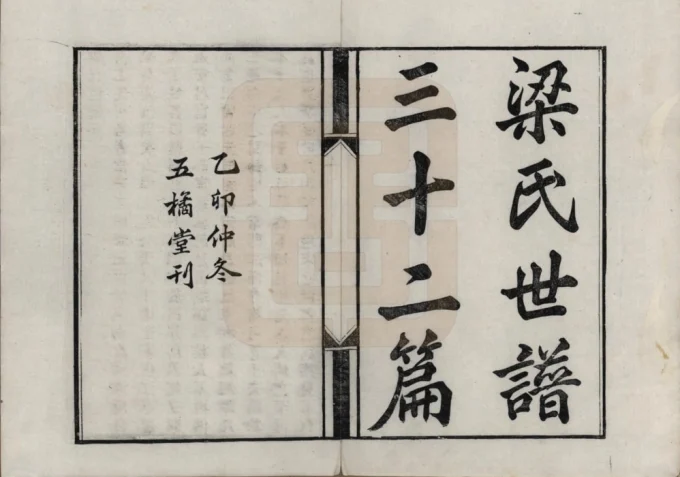 梁氏世譜
三十二篇
乙卯仲冬
五橘堂刊